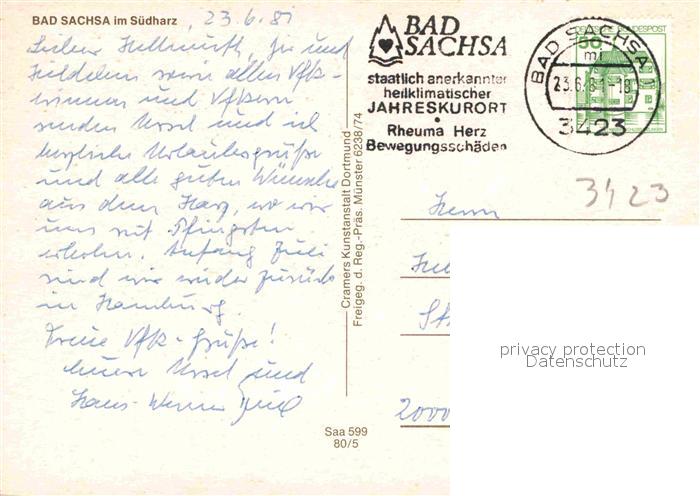 BAD SACHSA im Südharz
23.6.81
Lieber Hellmuth, Dir und
sowie allen VfK-
innen und VfKern
senden Ursel und ich
herzliche Urlaubsgrüße
und alle guten Wünsche
aus dem Harz, wo wir
uns seit Pfingsten
erholen. Anfang Juli
sind wir wieder zurück
in Hamburg.
Treue VfK-Grüße!
Ursel und
Hans-Werner
Cramers Kunstanstalt Dortmund
Freigeg. d. Reg.-Präs. Münster 6238/74
Saa 599
80/5
BAD
SACHSA
staatlich anerkannter
heilklimatischer
JAHRESKURORT
•
Rheuma Herz
Bewegungsschäden
BAD SACHSA
mf
23.6.81-18
3423
3423
Herrn
2000
privacy protection
Datenschutz